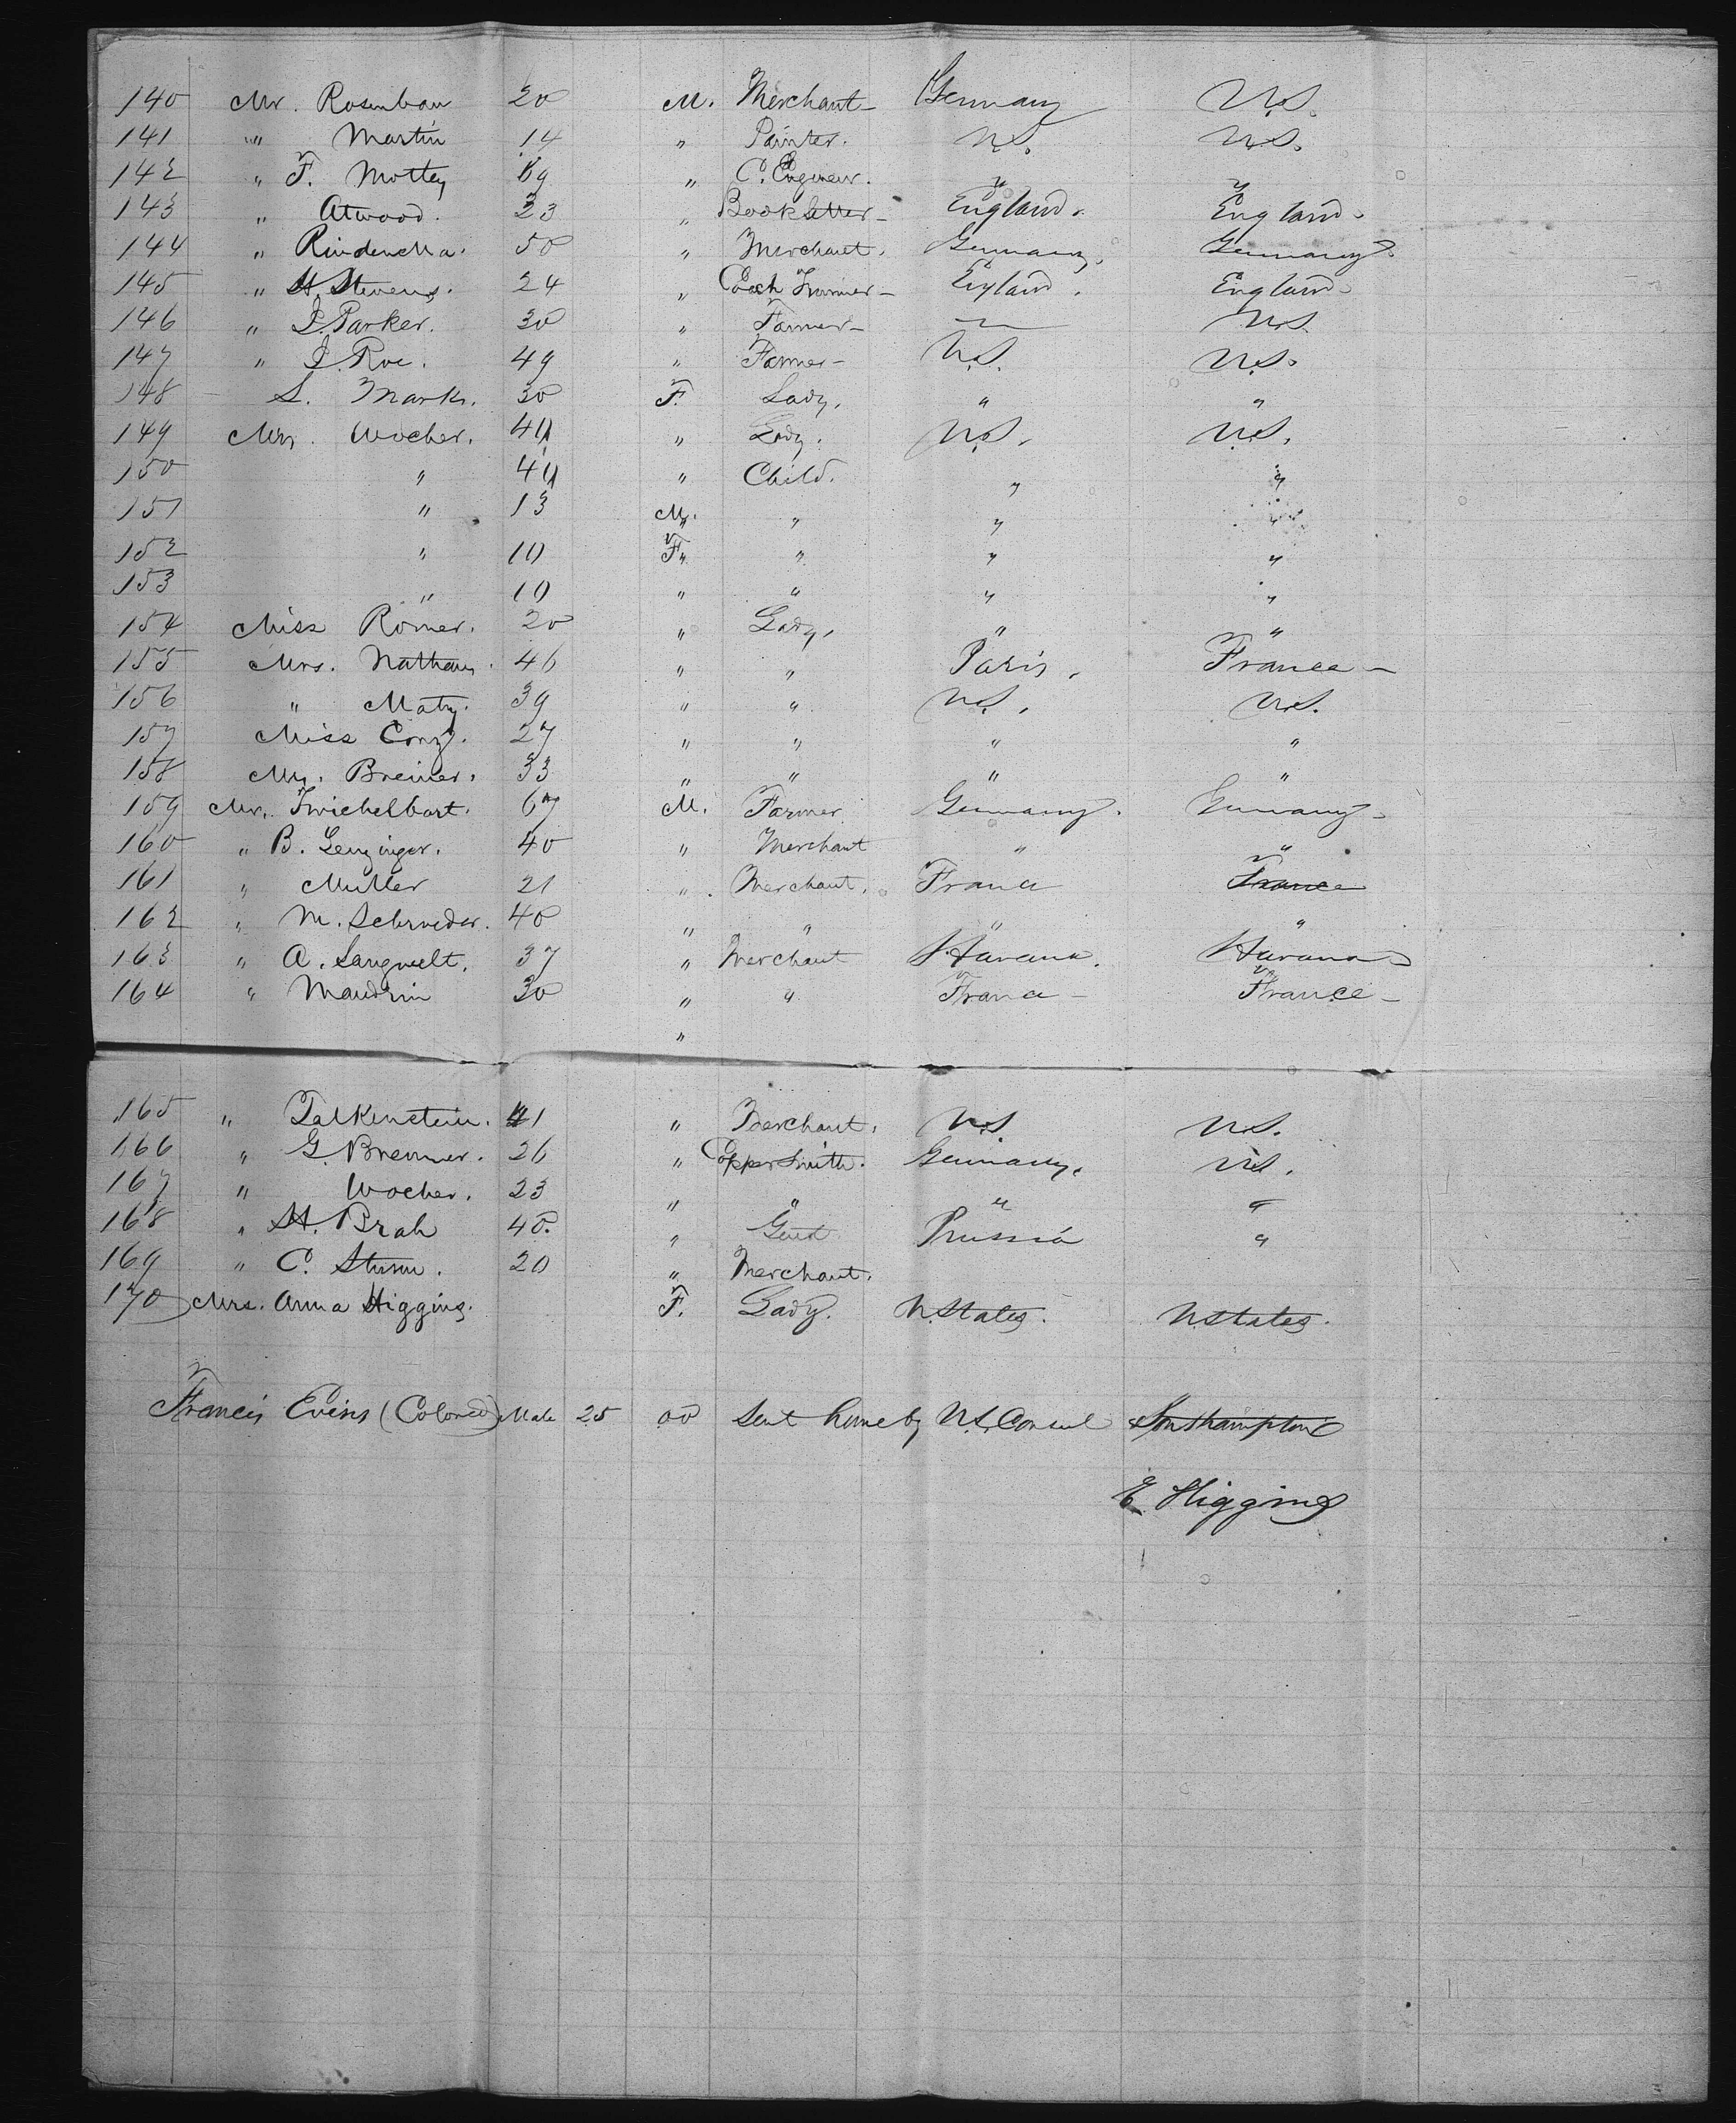 140 Mr. Rosenbau 20 M. Merchant Germany U.S.
141 " Martin 14 " Painter. U.S. U.S.
142 " F. Mottey 19 " C. Engineer. " "
143 " Atwood. 23 " Bookseller England. England.
144 " 50 " Merchant. Germany. Germany.
145 " H. Stevens. 24 " Coach Trimmer England. England.
146 " J. Parker. 30 " Farmer — U.S.
147 " J. Roe. 49 " Farmer U.S. U.S.
148 S. Marks. 30 F. Lady. " "
149 Mrs. Wocher. " Lady. U.S. U.S.
150 " " Child. " "
151 " 13 M. " " "
152 " 10 F. " " "
153 " 10 " " " "
154 Miss Romer. 20 " Lady. " "
155 Mrs. Nathan. 46 " " Paris. France
156 " Maty. 39 " " U.S. U.S.
157 Miss 27 " " " "
158 Mrs. Breiner. 33 " " " "
159 Mr. Twichelbart. 67 M. Farmer Germany. Germany
160 " B. Genzinger. 40 " Merchant " "
161 " Muller 21 " Merchant. France France
162 " M. Schroeder. 40 " " " "
163 " A. Langwelt. 37 " Merchant Havana. Havana
164 " Maudrin 30 " " France France
"
165 " Falkenstein. 41 " Merchant. U.S. U.S.
166 " G. Brenner. 26 " Coppersmith. Germany. U.S.
167 " Wocher. 23 " " " "
168 " H. Brah 40. " Gent Prussia "
169 " C. Sturm. 20 " Merchant.
170 Mrs. Anna Higgins. F. Lady. U.States. U.States.
Francis Evins (Colored) Male 25 00 Sent home by U.S. Consul Southampton
E Higgins